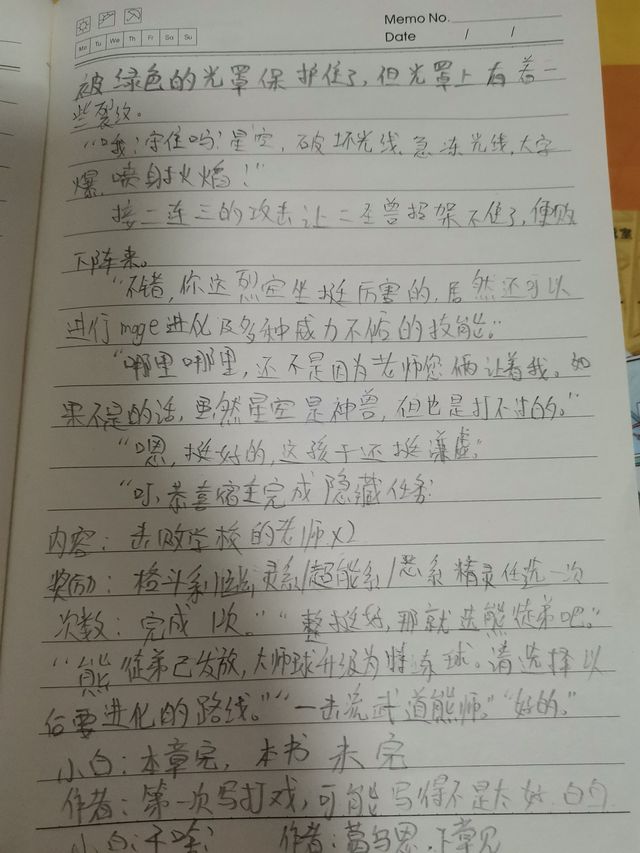 Memo No.
Mo Tu We Th Fr Sa Su
Date / /
被绿色的光罩保护住了,但光罩上有着一
些裂纹。
“哦?守住吗?星空,破坏光线、急冻光线,大字
爆,喷射火焰!”
接二连三的攻击让二圣兽招架不住了,便败
下阵来。
“不错,你这烈空坐挺厉害的,居然还可以
进行mage进化及多种威力不俗的技能。”
“哪里哪里,还不是因为老师您俩让着我。如
果不是的话,虽然星空是神兽,但也是打不过的。”
“嗯,挺好的,这孩子还挺谦虚。”
“叮,恭喜宿主完成隐藏任务:
内容:击败学校的老师x2
奖励:格斗系 灵系/超能系/恶系精灵任选一次
次数:完成1次。”“整挺好,那就选熊徒弟吧。”
“熊徒弟已发放,大师球升级为特训球。请选择以
后要进化的路线。”“一击流武道熊师。”“好的。”
小白:本章完,本书未完
作者:第一次写打戏,可能写得不是太好 白白
小白:干啥? 作者:葛乌恩,下章见